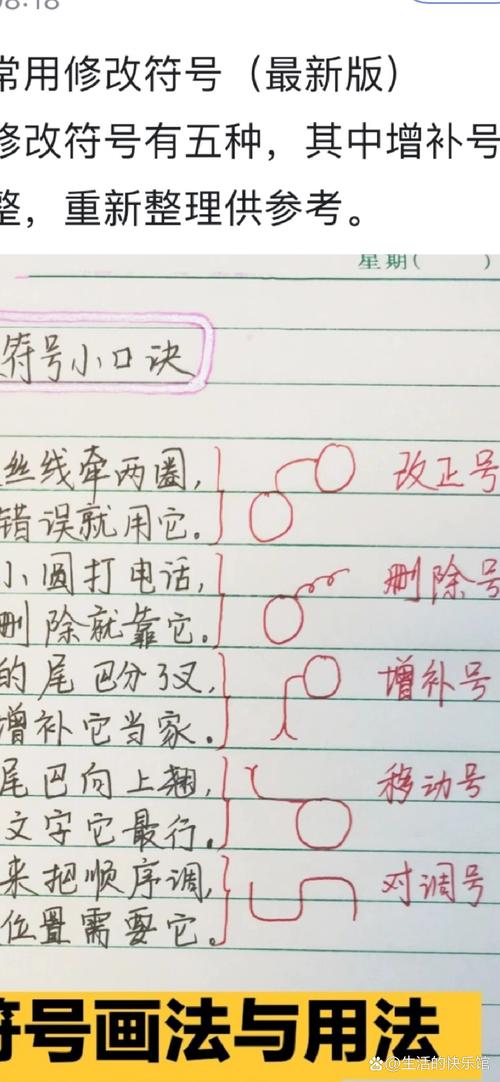 08:18
常用修改符号（最新版）
修改符号有五种，其中增补号
整，重新整理供参考。
星期( )
符号小口诀
丝线牵两圈，
错误就用它。
改正号
小圆打电话，
删除就靠它。
删除号
的尾巴分了叉，
增补它当家。
增补号
尾巴向上翘，
文字它最行。
移动号
来把顺序调，
位置需要它。
对调号
符号画法与用法
@生活的快乐馆